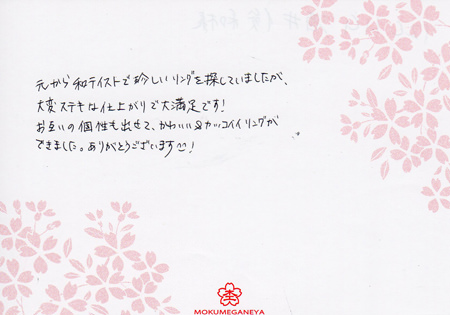 元から和テイストで珍しいリングを探していましたが、
大変ステキな仕上がりで大満足です!
お互いの個性も出せて、かわいい&カッコイイリングが
できました。ありがとうございます!
MOKUMEGANEYA